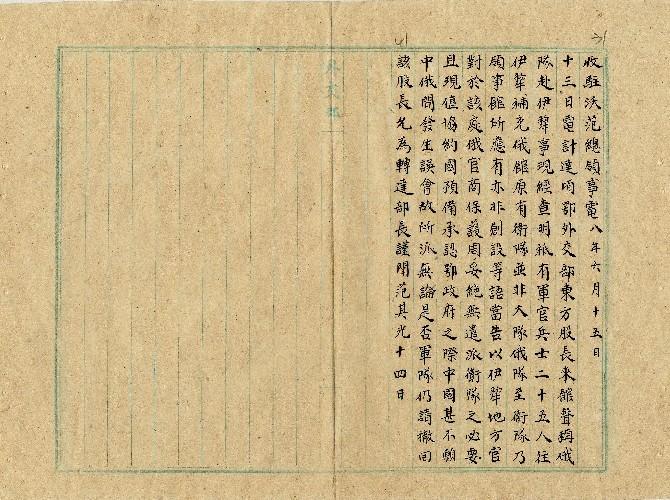 收駐沃范總領事電八年六月十五日
十三日電計達頃鄂外交部東方股長來館聲稱俄
隊赴伊犂事現經查明祇有軍官兵士二十五人往
伊犂補充俄館原有衛隊並非大隊俄隊至衛隊乃
領事館所應有亦非創設等語當告以伊犂地方官
對於該處俄官商保護周妥絕無遣派衛隊之必要
且現值協約國預備承認鄂政府之際中國甚不願
中俄間發生誤會故所派無論是否軍隊仍請撤回
該股長允為轉達部長謹聞范其光十四日